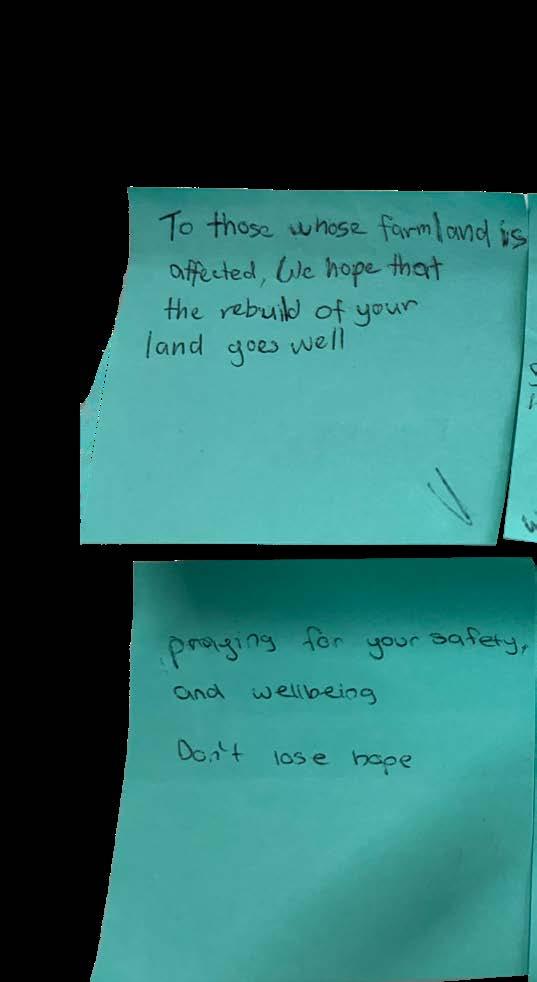 To those whose farmland is
affected, We hope that
the rebuild of your
land goes well
praying for your safety,
and wellbeing
Don't lose hope